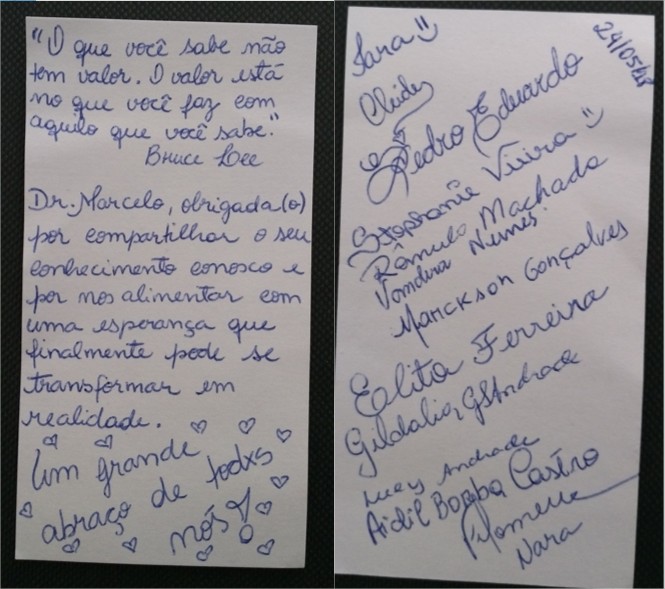 "O que você sabe não
tem valor. O valor está
no que você faz com
aquilo que você sabe."
Bruce Lee
Dr. Marcelo, obrigada(o)
por compartilhar o seu
conhecimento conosco e
por nos alimentar com
uma esperança que
finalmente pode se
transformar em
realidade.
Um grande
abraço de todxs
nós!
24/05/18
Iara
Pedro Eduardo
Stephanie Vieira
Rômulo Machado
Vandira Nunes
Marckson Gonçalves
Elita Ferreira
Gildalia GSAndrade
Andrade
Aidil Borba Castro
Filomena
Nara